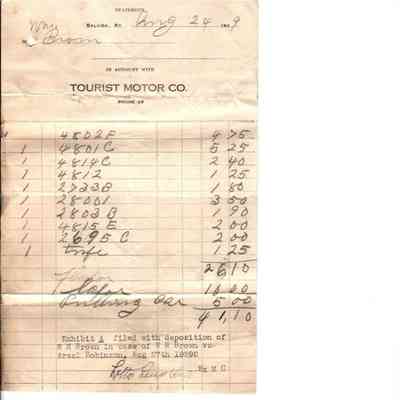 STATEMENT
Salina, Ky. Aug 24 19 9
Wm
M Brown
IN ACCOUNT WITH
TOURIST MOTOR CO.
4802F 4 75
1 4801C 5 25
1 4814C 2 40
1 4812 1 25
1 2733B 1 80
1 28001 3 50
1 2803B 1 90
1 4815E 2 00
1 2695C 2 00
1 1 25
26 10
Labor 10 00
car 5 00
41,10
Exhibit A filed with deposition of
W M Brown in case of W M Brown vs
Robinson, Aug 27th
By M C